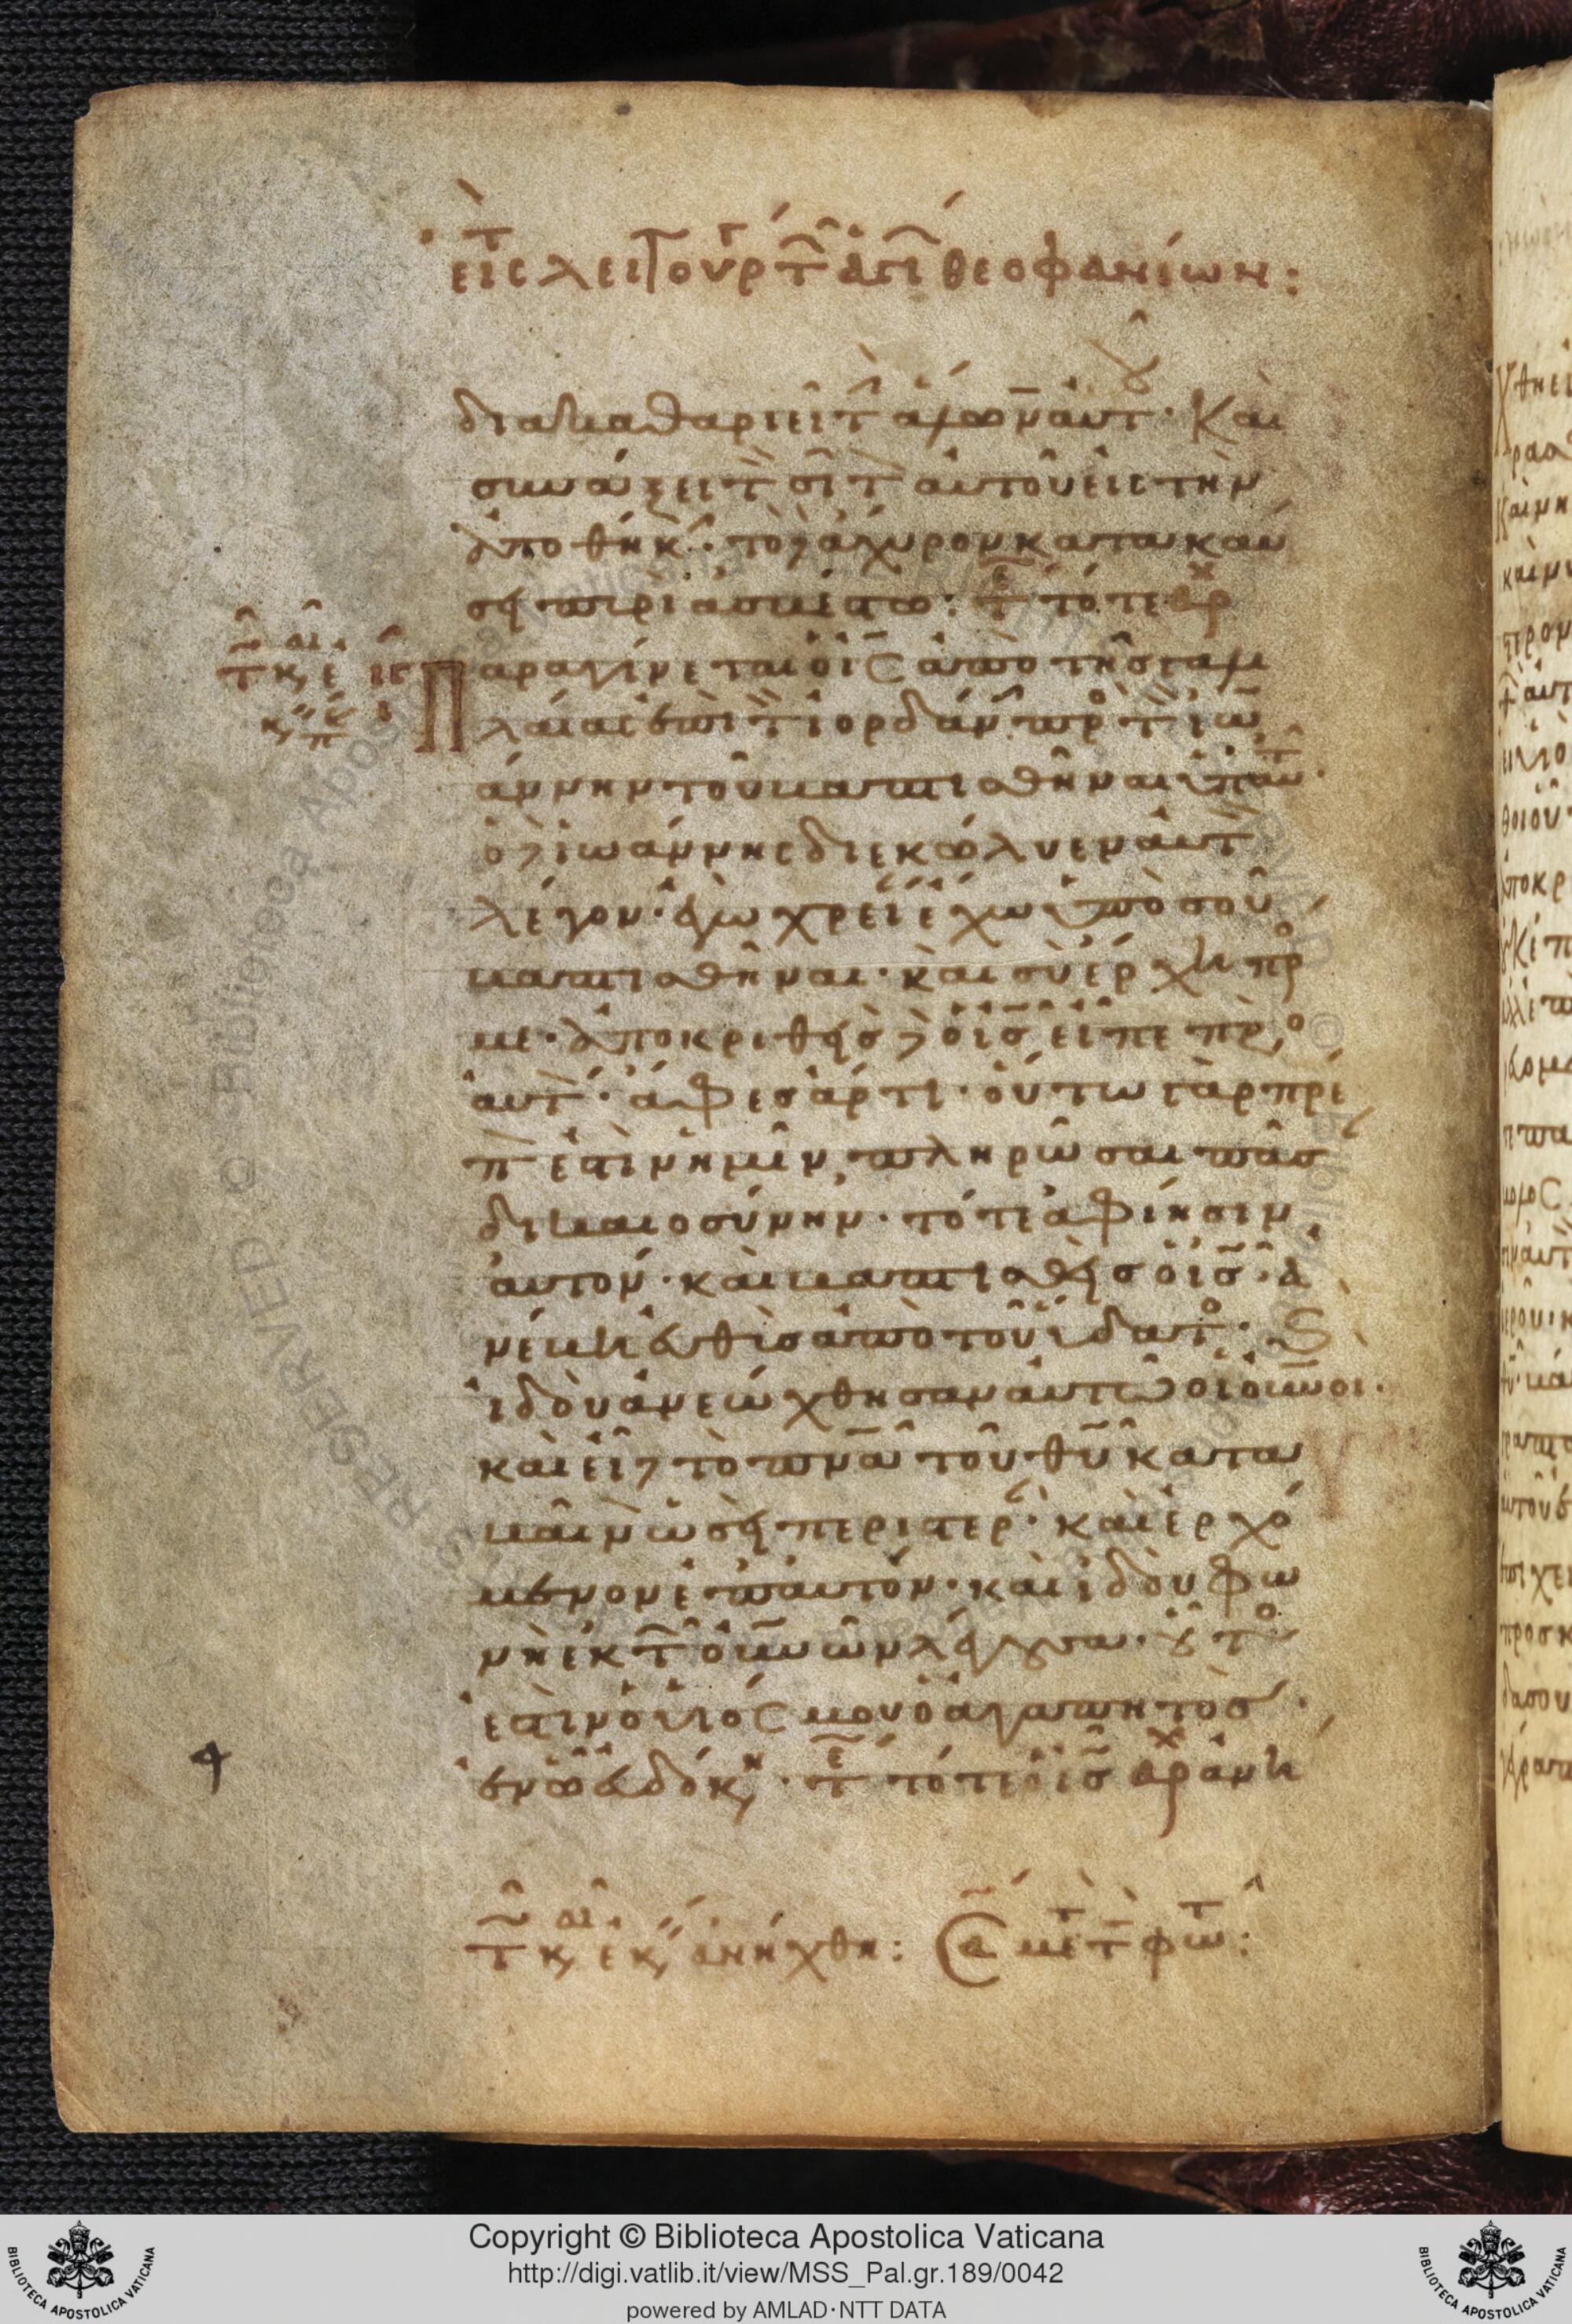 εἰς λειτουργ τ ἁγι θεοφανίων:
διακαθαριεῖ τ ἅλωνα αὐτοῦ· Καὶ
συνάξει τ σῖτ αὐτοῦ εἰς τὴν
ἀποθήκ· τὸ δὲ ἄχυρον κατακαύ
σει πυρὶ ἀσβέστω: τ τότε αρχ
Παραγίνεται ὁ ις ἀπὸ τῆς γαλι
λαίας ἐπὶ τ ἰορδάν πρὸς τ ἰω
άννην τοῦ βαπτισθῆναι ὑπ αυτ
ὁ δὲ ἰωάννης διεκώλυεν αὐτ
λέγον· ἐγὼ χρεί ἔχω ὑπὸ σοῦ
βαπτισθῆναι· καὶ σὺ ἔρχη πρ
με· ἀποκριθεὶς δὲ ὁ ις εἶπε πρ
αὐτ· ἄφες ἄρτι· οὕτω γὰρ πρέ
π ἐστὶν ἡμῖν πληρῶσαι πᾶσ
δικαιοσύνην· τότε ἀφίησιν
αὐτόν· καὶ βαπτισθεὶς ὁ ις· ἀ
νέβη εὐθὺς ἀπὸ τοῦ ὕδατος· Καὶ
ἰδοὺ ἀνεώχθησαν αὐτῶ οἱ οὐνοι·
καὶ εἶδε τὸ πνα τοῦ θυ κατα
βαῖνον ὡσεὶ περιστερ· καὶ ἐρχό
μενον ἐπ αὐτόν· καὶ ἰδοὺ φω
νὴ ἐκ τ οὐνῶν λέγουσα· οὗτος
ἐστὶν ὁ υἱός μου ὁ ἀγαπητὸς·
ἐν ὧ εὐδόκ· τ τότε ὁ ις αρχ ἀνή
τ κ ε κ ἀνήχθη: Σα με τ φωτ:
Copyright © Biblioteca Apostolica Vaticana
http://digi.vatlib.it/view/MSS_Pal.gr.189/0042
powered by AMLAD·NTT DATA
BIBLIOTECA APOSTOLICA VATICANA
BIBLIOTECA APOSTOLICA VATICANA